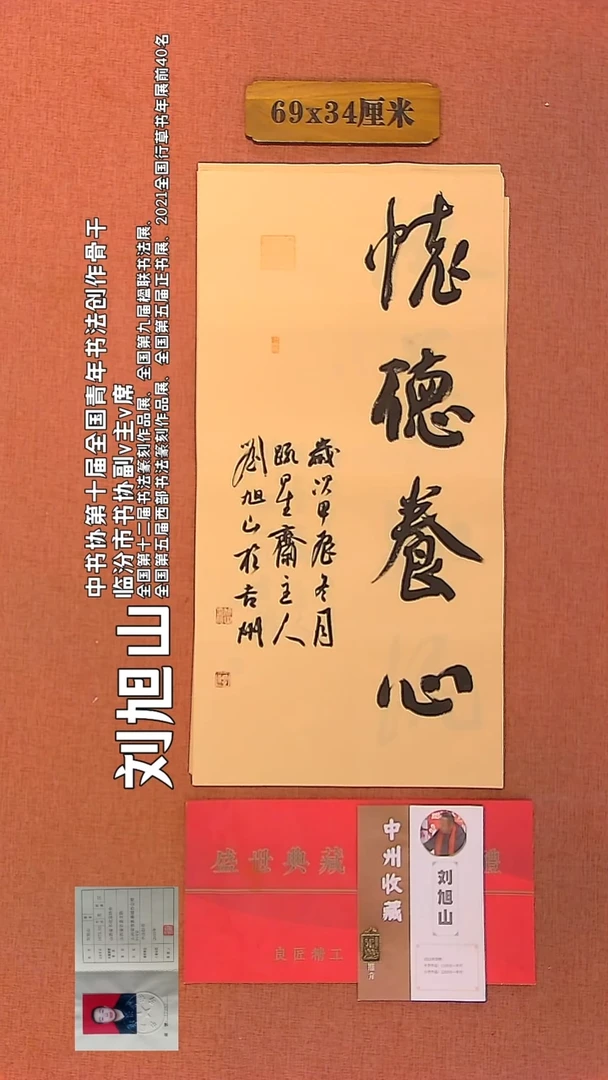 69x34厘米
懷德養心
歲次甲辰冬月
臨星齋主人
劉旭山於吉州
中书协第十届全国青年书法创作骨干
临汾市书协副v主v席
全国第十二届书法篆刻作品展、全国第九届楹联书法展、
全国第五届西部书法篆刻作品展、全国第五届正书展、2021全国行草书年展前40名
刘旭山
盛世典藏
禮
良匠精工
中州收藏
刘旭山